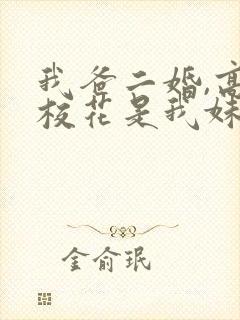 我爸二婚,高
校花是我妹
金俞珉